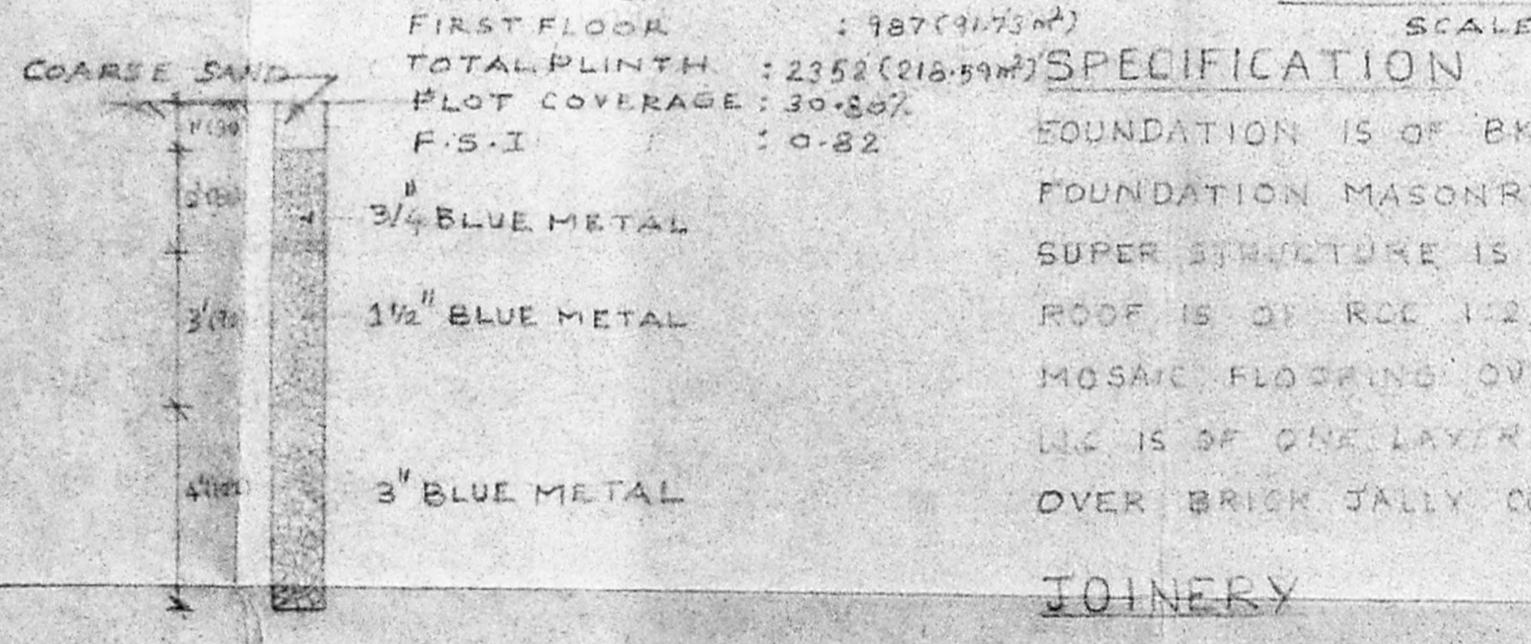 FIRST FLOOR : 987 (91.73 m²)
TOTAL PLINTH : 2352 (218.59 m²)
PLOT COVERAGE : 30.80%
F.S.I : 0.82
COARSE SAND
3/4" BLUE METAL
1 1/2" BLUE METAL
3" BLUE METAL
SCALE
SPECIFICATION
FOUNDATION IS OF
FOUNDATION
SUPER STRUCTURE IS
ROOF IS OF RCC 1:2
MOSAIC FLOORING
IS OF ONE LAYER
OVER BRICK JALLY
JOINERY